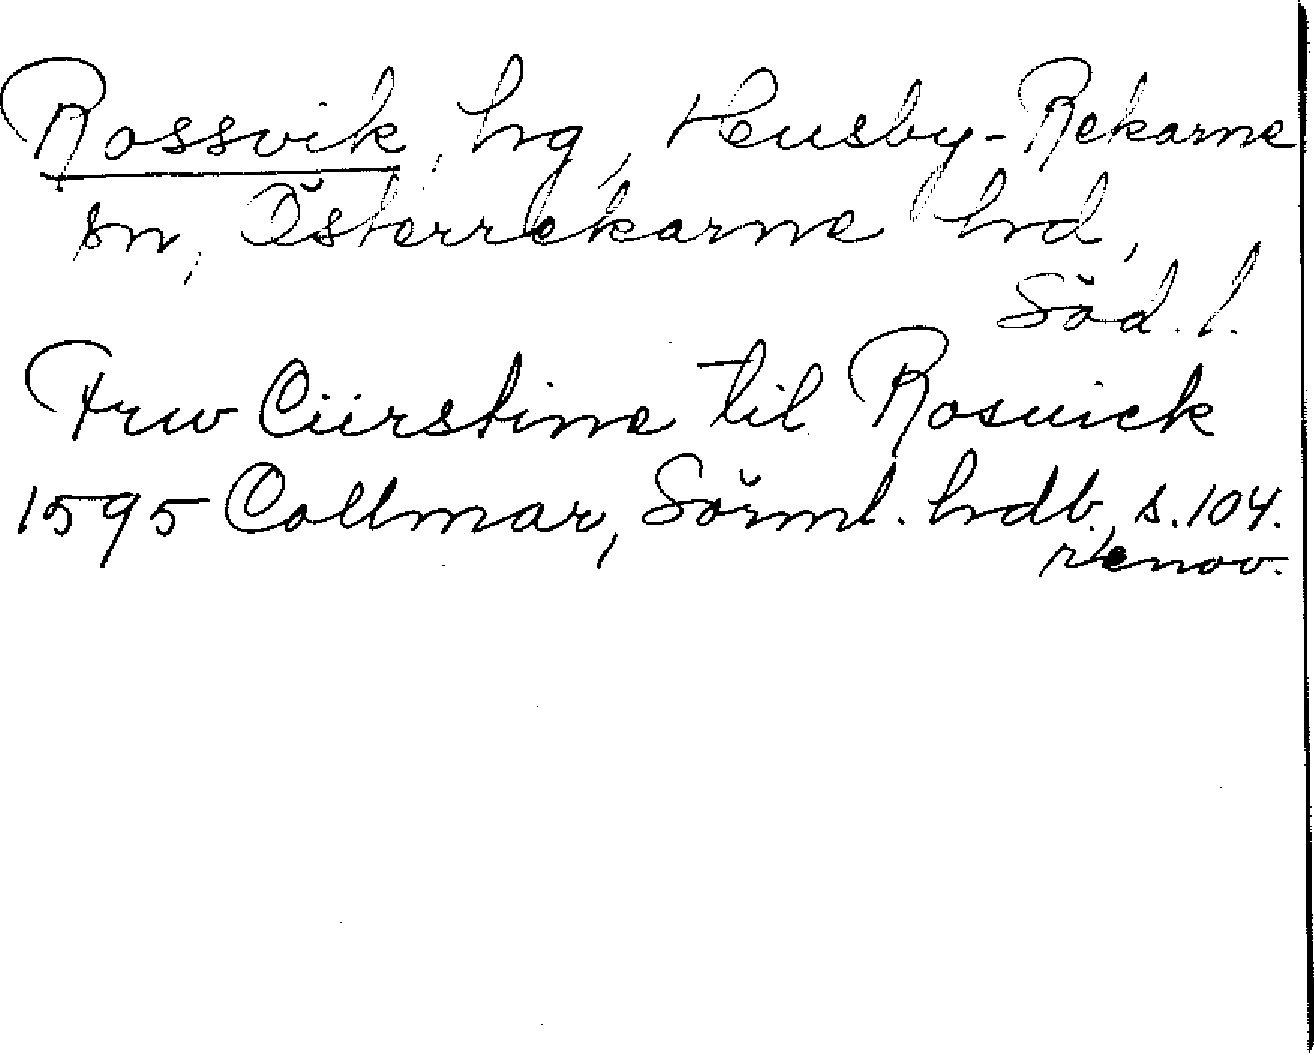 Rossvik, hg, Husby-Rekarne
sn, Österrekarne hd,
Söd. l.
Frw Ciirstina til Rosuick
1595 Collmar, Sörml. hdb., s. 104.
renov.